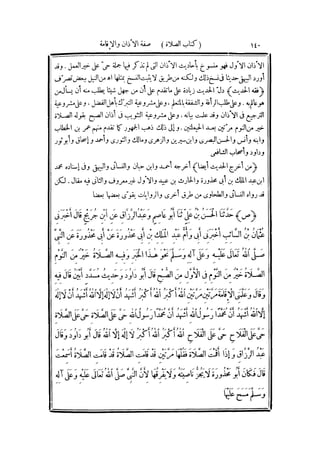 ١٤٠ (كتاب الصلاة) صفة الأذان والإقامة
الأذان الأول فهو منسوخ بأحاديث الأذان التى لم تذكر فيها جملة حىّ على خير العمل. وقد
أورد البيهقى حديثا فى نسخ ذلك ولكنه من طريق لا يثبت النسخ بمثلها اه من النيل ببعض تصرّف
(فقه الحديث) دلّ الحديث زيادة على ما تقدم على أن من جهل شيئا يطلب منه أن يسأل من
هو عالم به. وعلى طلب الرأفة والشفقة بالمتعلم. وعلى مشروعية التبرّك بأهل الفضل. وعلى مشروعية
الترجيع فى الأذان وقد علمت بيانه. وعلى مشروعية التثويب فى أذان الصبح بقوله الصلاة
خير من النوم مرّتين بعد الحيعلتين. وإلى ذلك ذهب الجمهور كما تقدم منهم عمر بن الخطاب
وابنه وأنس والحسن البصرى وابن سيرين والزهرى ومالك والثورى وأحمد وإسحاق وأبو ثور
وداود وأصحاب الشافعى
(من أخرج الحديث أيضا) أخرجه أحمد وابن حبان والنسائى والبيهقى وفى إسناده محمد
ابن عبد الملك بن أبى محذورة والحارث بن عبيد والأول غير معروف والثانى فيه مقال. لكن
قد رواه النسائى والطحاوى من طرق أخرى والروايات يقوّى بعضها بعضا
(ص) حَدَّثَنَا الْحَسَنُ بْنُ عَلِيٍّ ثَنَا أَبُو عَاصِمٍ وَعَبْدُ الرَّزَّاقِ عَنِ ابْنِ جُرَيْجٍ قَالَ أَخْبَرَنِى
عُثْمَانُ بْنُ السَّائِبِ أَخْبَرَنِى أَبِى وَأُمُّ عَبْدِ الْمَلِكِ بْنِ أَبِى مَحْذُورَةَ عَنْ أَبِى مَحْذُورَةَ عَنِ النَّبِىِّ
صَلَّى اللهُ تَعَالَى عَلَيْهِ وَعَلَى آلِهِ وَسَلَّمَ نَحْوَ هَذَا الْخَبَرِ وَفِيهِ الصَّلَاةُ خَيْرٌ مِنَ النَّوْمِ
الصَّلَاةُ خَيْرٌ مِنَ النَّوْمِ فِى الْأُولَى مِنَ الصُّبْحِ قَالَ أَبُو دَاوُدَ وَحَدِيثُ مُسَدَّدٍ أَبْيَنُ قَالَ فِيهِ
وَقَالَ وَعَلَّمَنِى الْإِقَامَةَ مَرَّتَيْنِ مَرَّتَيْنِ اللهُ أَكْبَرُ اللهُ أَكْبَرُ أَشْهَدُ أَنْ لَا إِلَهَ إِلَّا اللهُ أَشْهَدُ أَنْ لَا إِلَهَ
إِلَّا اللهُ أَشْهَدُ أَنَّ مُحَمَّدًا رَسُولُ اللهِ أَشْهَدُ أَنَّ مُحَمَّدًا رَسُولُ اللهِ حَىَّ عَلَى الصَّلَاةِ حَىَّ عَلَى الصَّلَاةِ
حَىَّ عَلَى الْفَلَاحِ حَىَّ عَلَى الْفَلَاحِ اللهُ أَكْبَرُ اللهُ أَكْبَرُ لَا إِلَهَ إِلَّا اللهُ قَالَ أَبُو دَاوُدَ وَقَالَ
عَبْدُ الرَّزَّاقِ وَإِذَا أَقَمْتَ الصَّلَاةَ فَقُلْهَا مَرَّتَيْنِ قَدْ قَامَتِ الصَّلَاةُ قَدْ قَامَتِ الصَّلَاةُ أَسَمِعْتَ
قَالَ فَكَانَ أَبُو مَحْذُورَةَ لَا يَجُزُّ نَاصِيَتَهُ وَلَا يَفْرِقُهَا لِأَنَّ النَّبِىَّ صَلَّى اللهُ تَعَالَى عَلَيْهِ وَعَلَى آلِهِ
وَسَلَّمَ مَسَحَ عَلَيْهَا